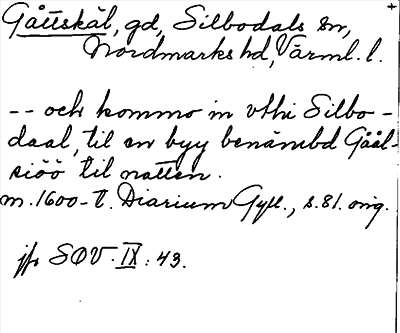 Gåttskäl, gd, Silbodals sn,
Nordmarks hd, Värml. l.
-- och kommo in vthi Silbo-
daal, til en byy benämbd Gåål-
siöö til natten.
m. 1600-t. Diarium Gyll., s. 81. orig.
jfr SOV. IX: 43.